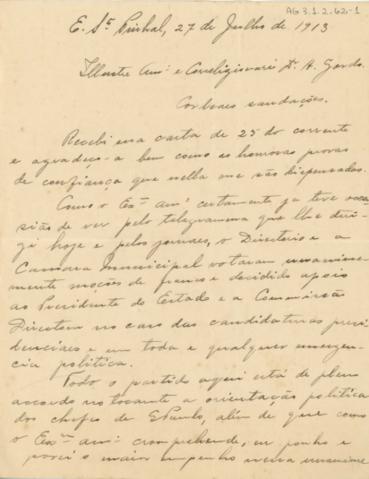 AG 3.1.2.62i-1
E. Sto Pinhal, 27 de Julho de 1913
Illustre Amo e Correligionario Dr. A. Gordo.
Cordeaes saudações.
Recebi sua carta de 25 do corrente
e agradeço-a bem como as honrosas provas
de confiança que nella me são dispensadas.
Como o Exmo amo certamente já teve occa-
sião de ver pelo telegramma que lhe diri-
gi hoje e pelos jornaes, o Directorio e a
Camara Municipal votaram unanime-
mente moções de franco e decidido apoio
ao Presidente do Estado e a Commissão
Directora no caso das candidaturas presi-
denciaes e em toda e qualquer emergen-
cia politica.
Todo o partido aqui está de pleno
accordo no tocante a orientação politica
dos chefes de S. Paulo, além de que como
o Exmo amo comprehende, eu ponho e
porei o maior empenho nessa unanime